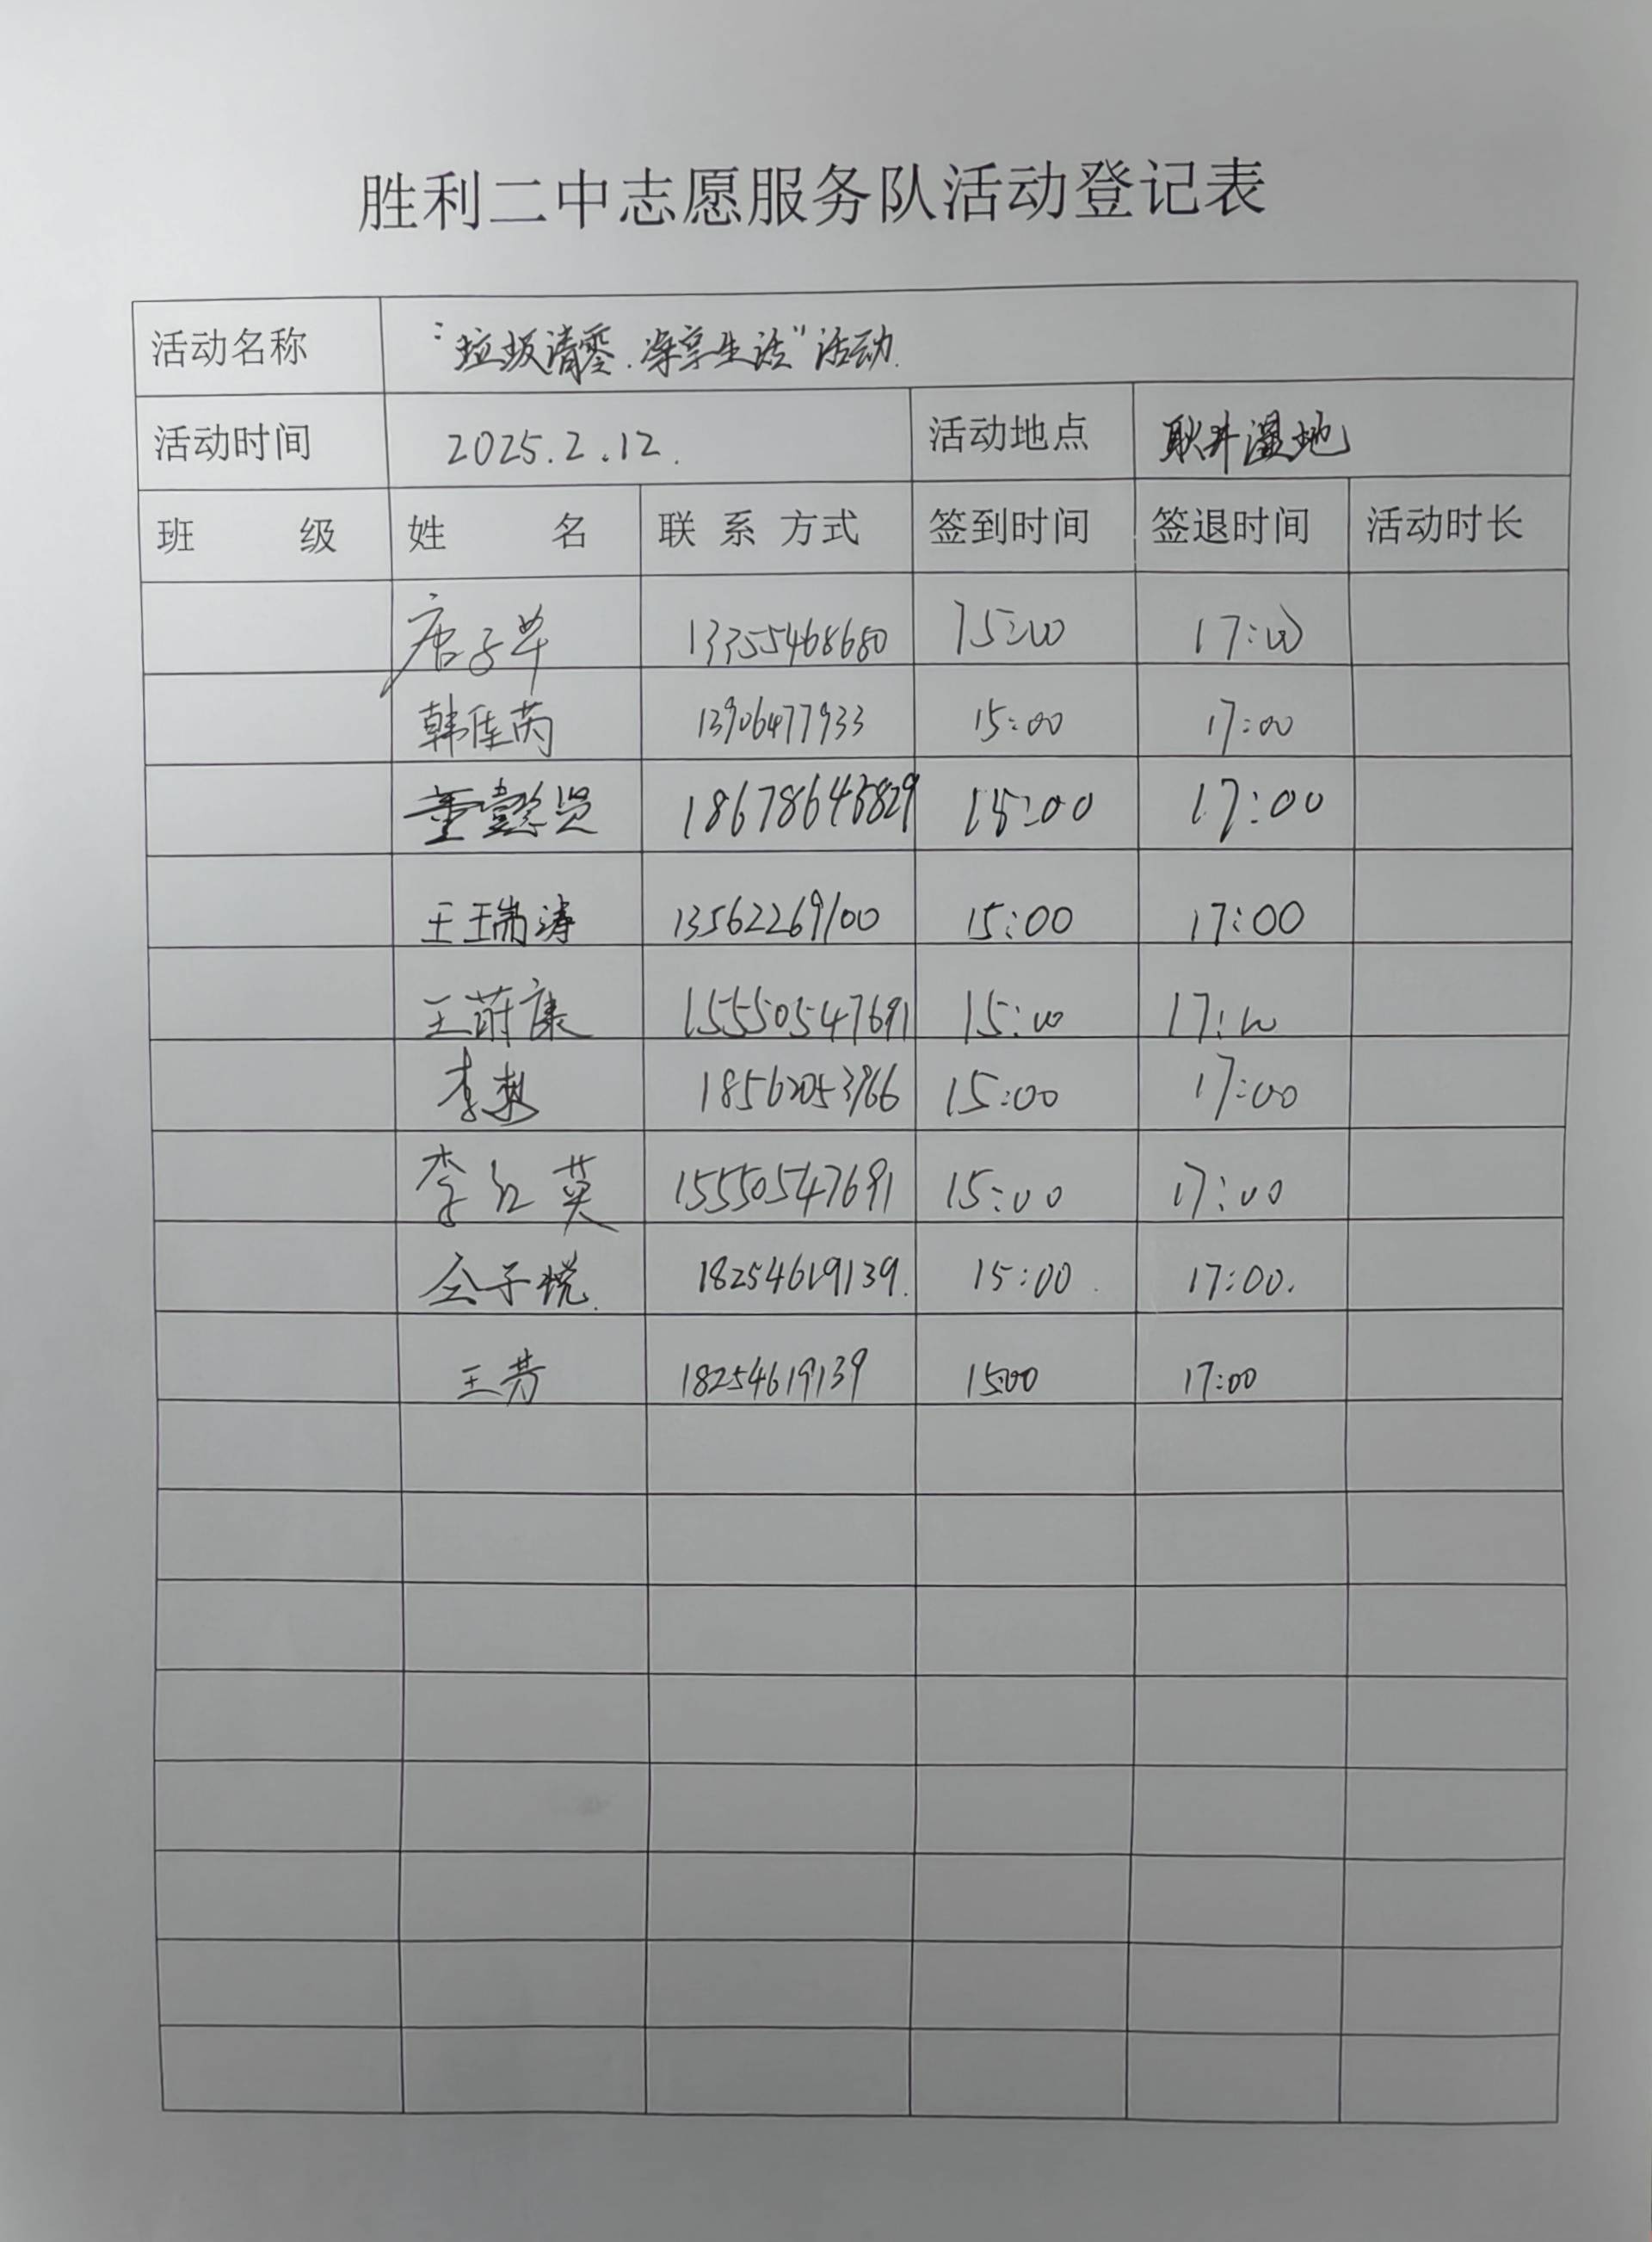 胜利二中志愿服务队活动登记表
活动名称 "垃圾清零.净享生活"活动.
活动时间 2025.2.12. 活动地点 耿井湿地
班 级 姓 名 联 系 方式 签到时间 签退时间 活动时长
唐子 13355468680 15:00 17:00
韩佳芮 13906477933 15:00 17:00
董懿贤 18678643829 15:00 17:00
王瑞涛 13562269100 15:00 17:00
王莳康 15550547691 15:00 17:00
李 15:00 17:00
李红英 15550547691 15:00 17:00
仝子悦. 18254619139. 15:00. 17:00.
王芳 18254619139 15:00 17:00